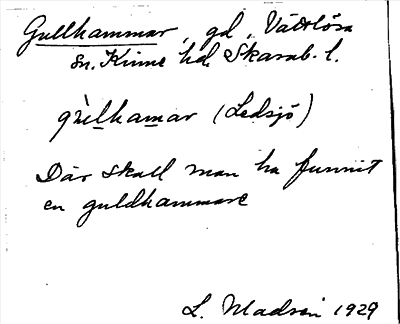 Gullhammar, gd, Vättlösa
sn. Kinne hd. Skarab. l.
gùlhamar (Ledsjö)
Där skall man ha funnit
en guldhammare
L. Madsen 1929